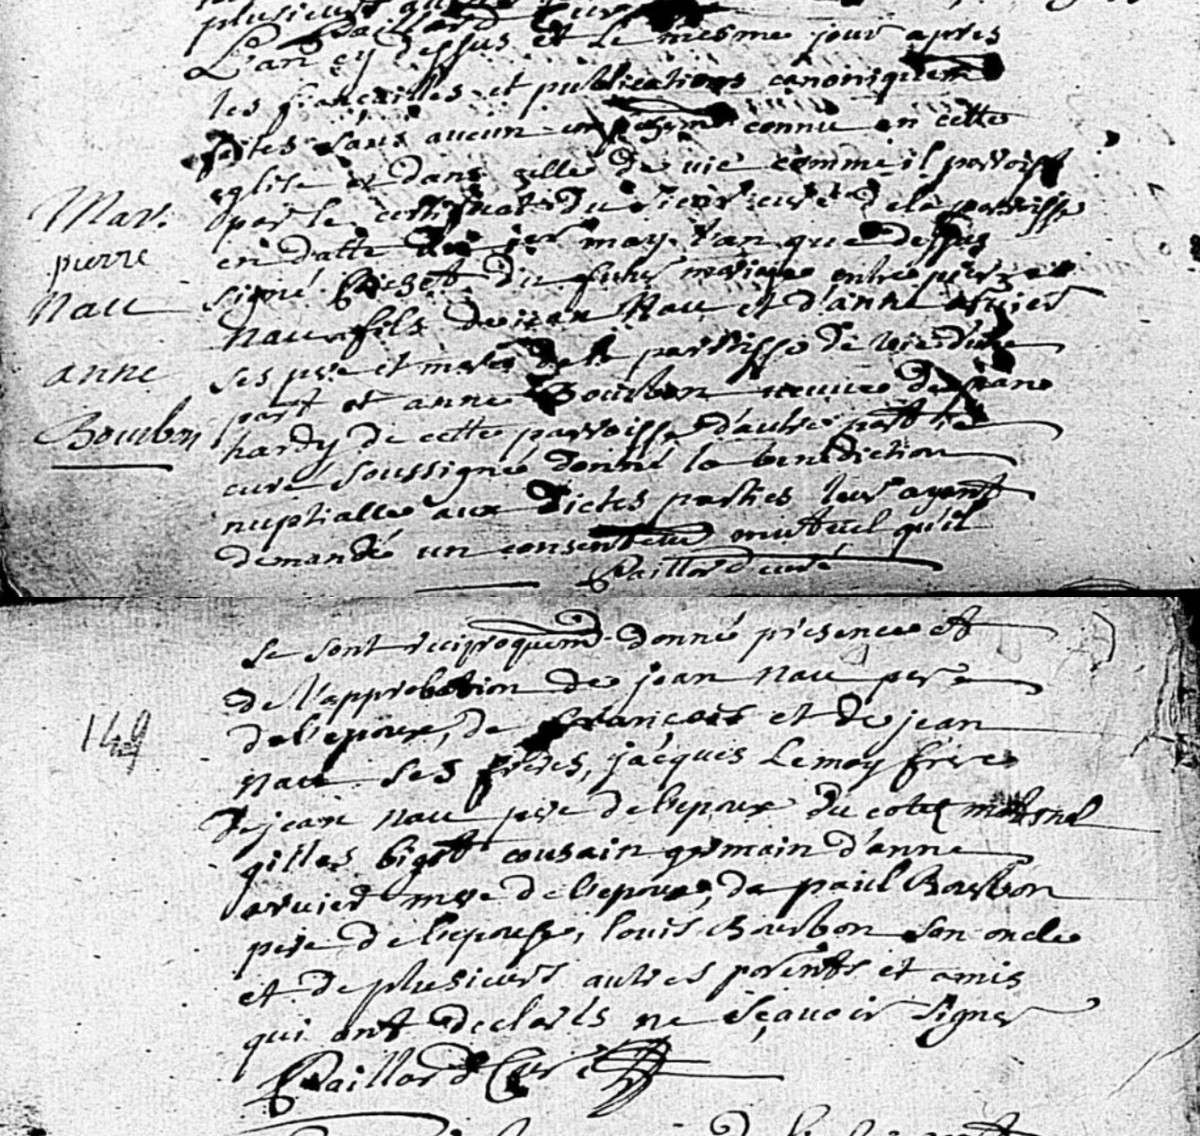 plusieurs
L'an cy dessus et le mesme jour apres
les fiançailles et publications canoniquem
faites sans aucun connu en cette
eglise et dans celle de vie comme il paroist
par le certificat du sieur curé de la paroisse
en datte du may l'an que dessus
signé mariage entre pierre
Mar.
pierre
Nau
anne
Bourbon
Nau fils de jean Nau et d'anne
ses pere et mere de la parroisse de vie d'une
part et anne Bourbon veuve de jean
hardy de cette parroisse d'autre part
curé soussigné donné la benediction
nuptialle aux dictes parties leur ayant
demandé un mutuel qu'il
Paillard curé
se sont reciproquem donné presence et
de l'approbation de jean Nau pere
149
de l'epoux, de francois et de jean
Nau ses freres, jacques Lemoy frere
de jean Nau pere de l'epoux du coté
gilles bigot cousain germain d'anne
mere de l'epoux, de paul Bourbon
pere de l'epouse, louis Bourbon son oncle
et de plusieurs autres parents et amis
qui ont declarés ne sçavoir signer
Paillard Curé